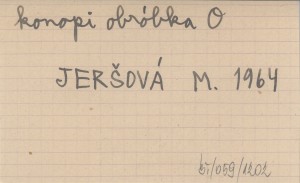 konopi obróbka O
JERŠOVÁ M. 1964
/059/1202